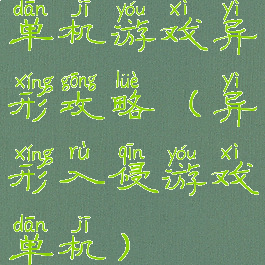 dān jī yóu xì yì
单机游戏异
xíng gōng lüè yì
形攻略（异
xíng rù qīn yóu xì
形入侵游戏
dān jī
单机）